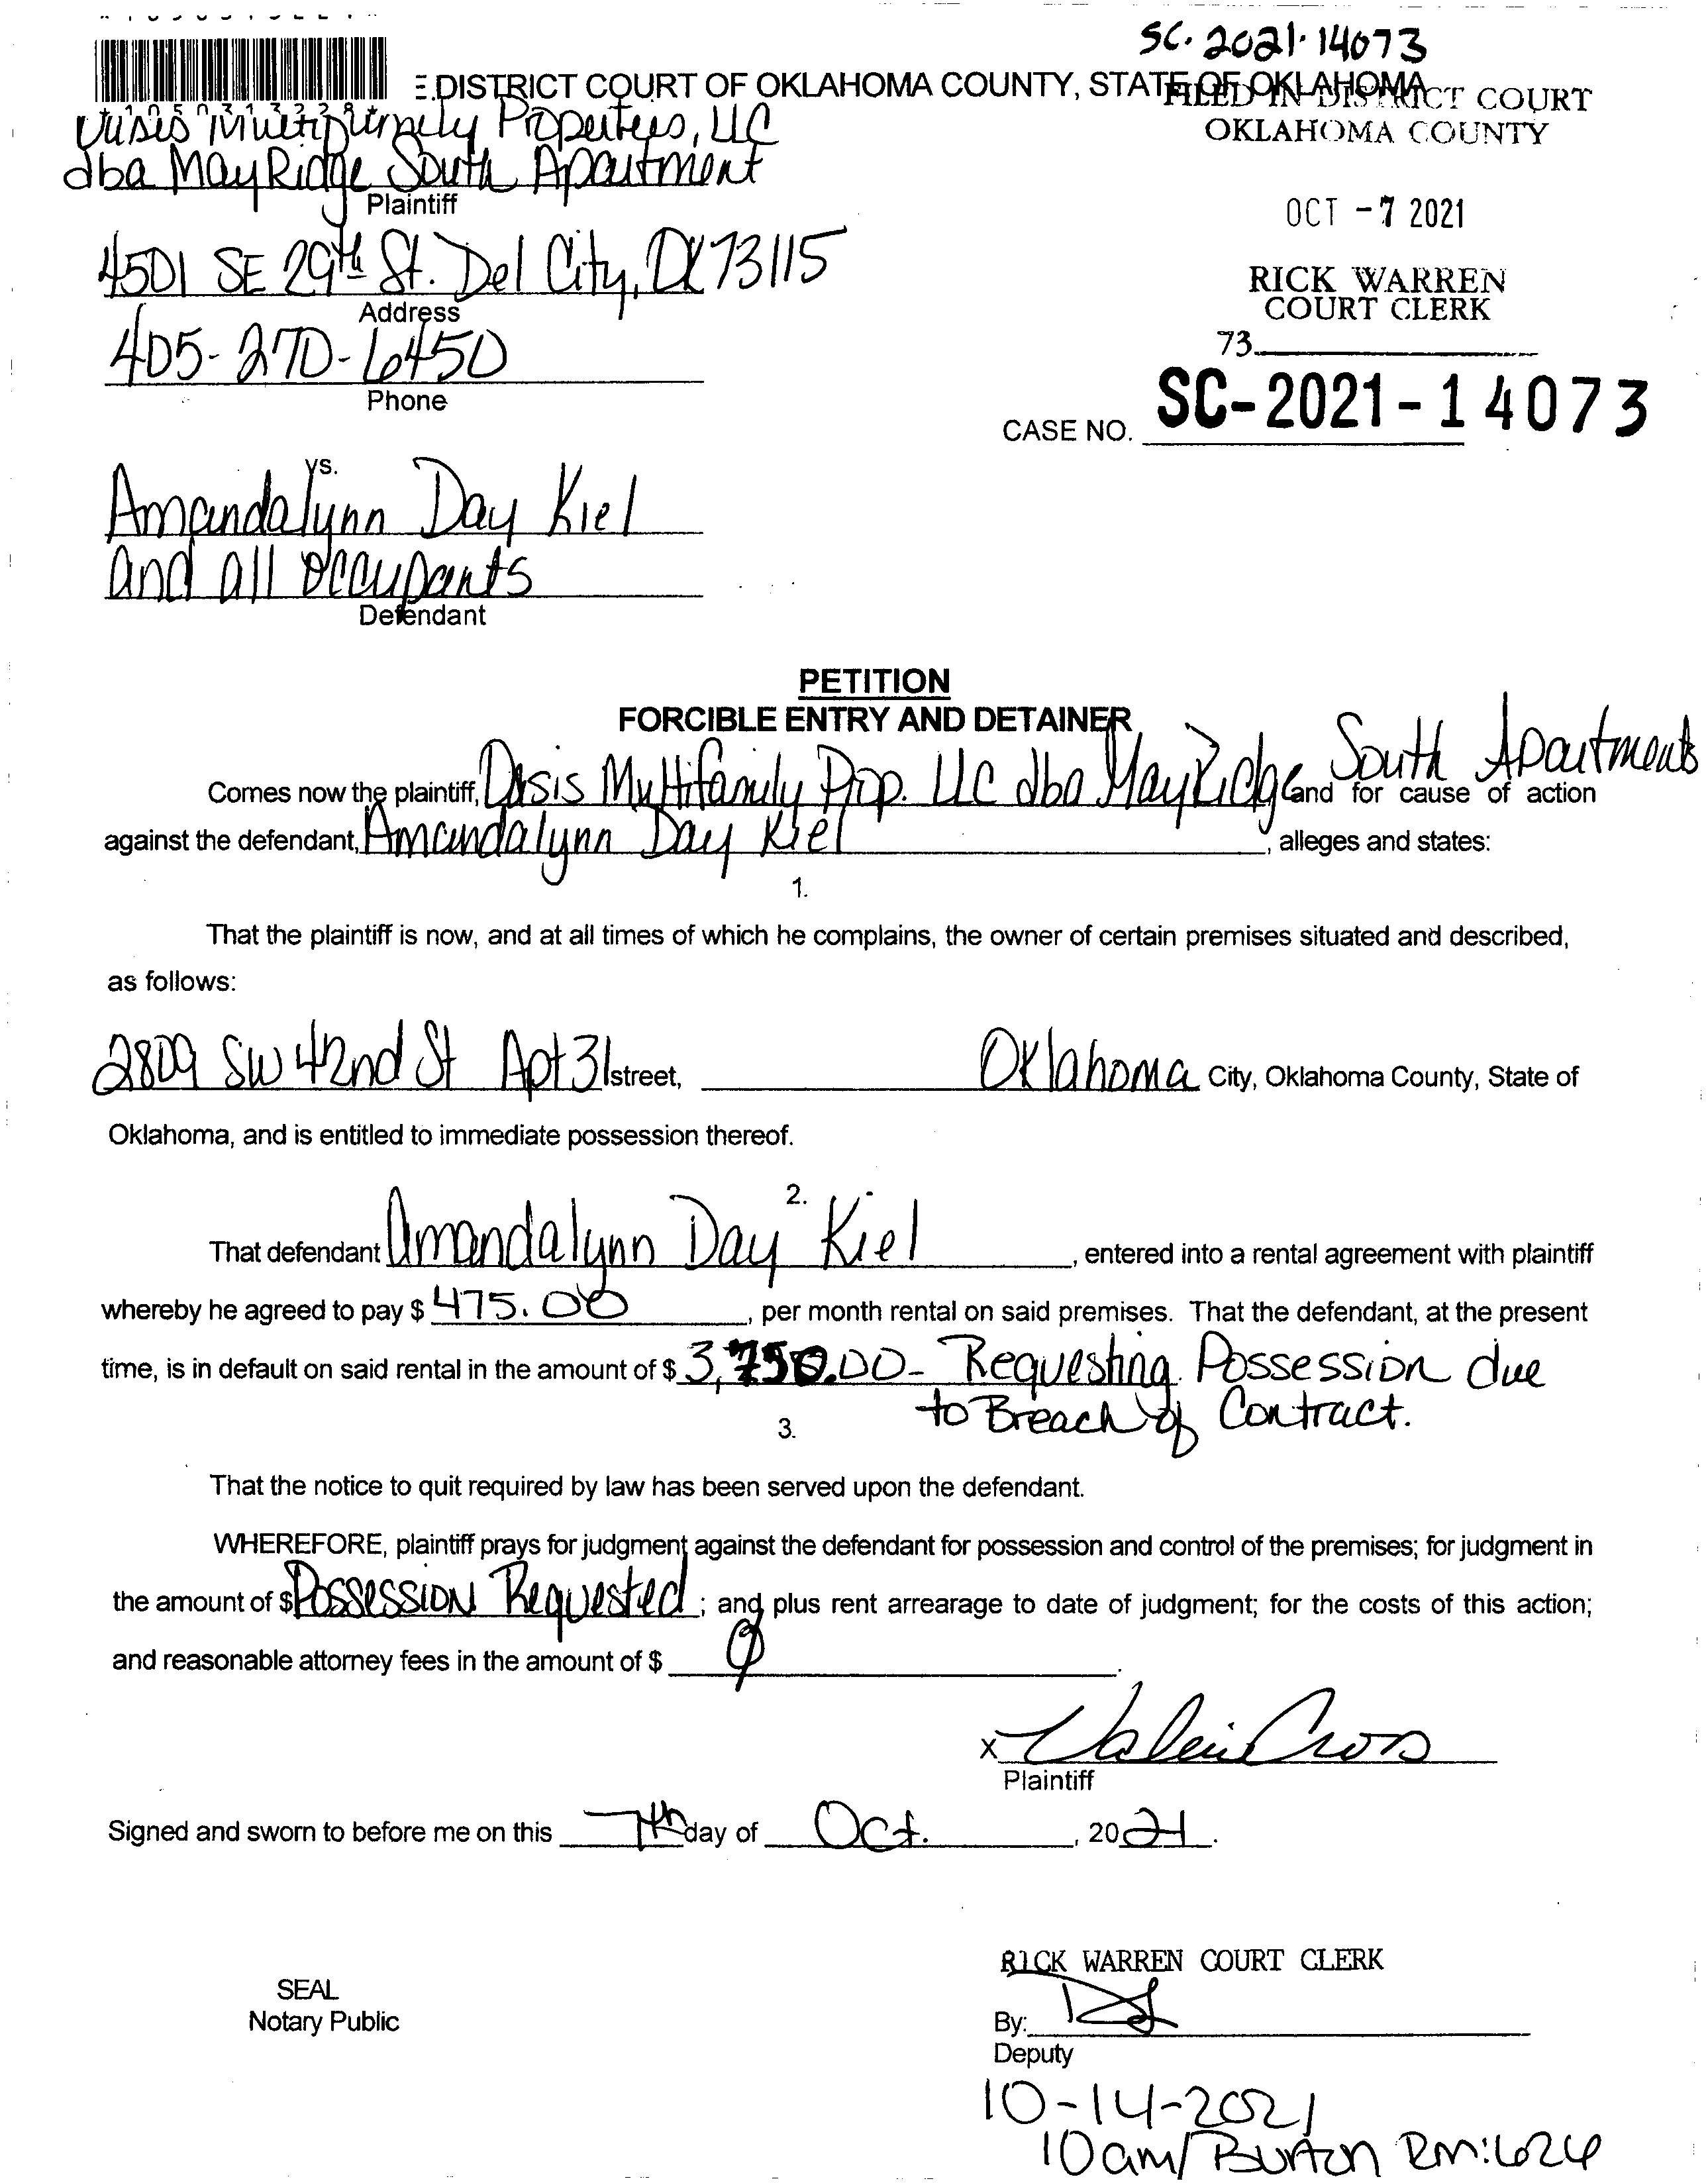 SC. 2021. 14073
DISTRICT COURT OF OKLAHOMA COUNTY, STATE OF OKLAHOMA
FILED IN DISTRICT COURT
OKLAHOMA COUNTY
Multifamily Properties, LLC
dba MayRidge South Apartment
Plaintiff
OCT -7 2021
4501 SE 29th St. Del City, OK 73115
Address
RICK WARREN
COURT CLERK
73
405-270-6450
Phone
CASE NO. SC-2021-14073
vs.
Amandalynn Day Kiel
and all occupants
Defendant
PETITION
FORCIBLE ENTRY AND DETAINER
Comes now the plaintiff, Oasis Multifamily Prop. LLC dba MayRidge South Apartments and for cause of action
against the defendant, Amandalynn Day Kiel, alleges and states:
1.
That the plaintiff is now, and at all times of which he complains, the owner of certain premises situated and described,
as follows:
2809 SW 42nd St Apt 31 street, Oklahoma City, Oklahoma County, State of
Oklahoma, and is entitled to immediate possession thereof.
2.
That defendant Amandalynn Day Kiel, entered into a rental agreement with plaintiff
whereby he agreed to pay $ 475.00, per month rental on said premises. That the defendant, at the present
time, is in default on said rental in the amount of $ 3,750.00- Requesting Possession due
to Breach of Contract.
3.
That the notice to quit required by law has been served upon the defendant.
WHEREFORE, plaintiff prays for judgment against the defendant for possession and control of the premises; for judgment in
the amount of $ Possession Requested; and plus rent arrearage to date of judgment; for the costs of this action;
and reasonable attorney fees in the amount of $ 0.
x Valerie Cross
Plaintiff
Signed and sworn to before me on this 7th day of Oct., 2021.
SEAL
Notary Public
RICK WARREN COURT CLERK
By:
Deputy
10-14-2021
10am/ Burton Rm:626